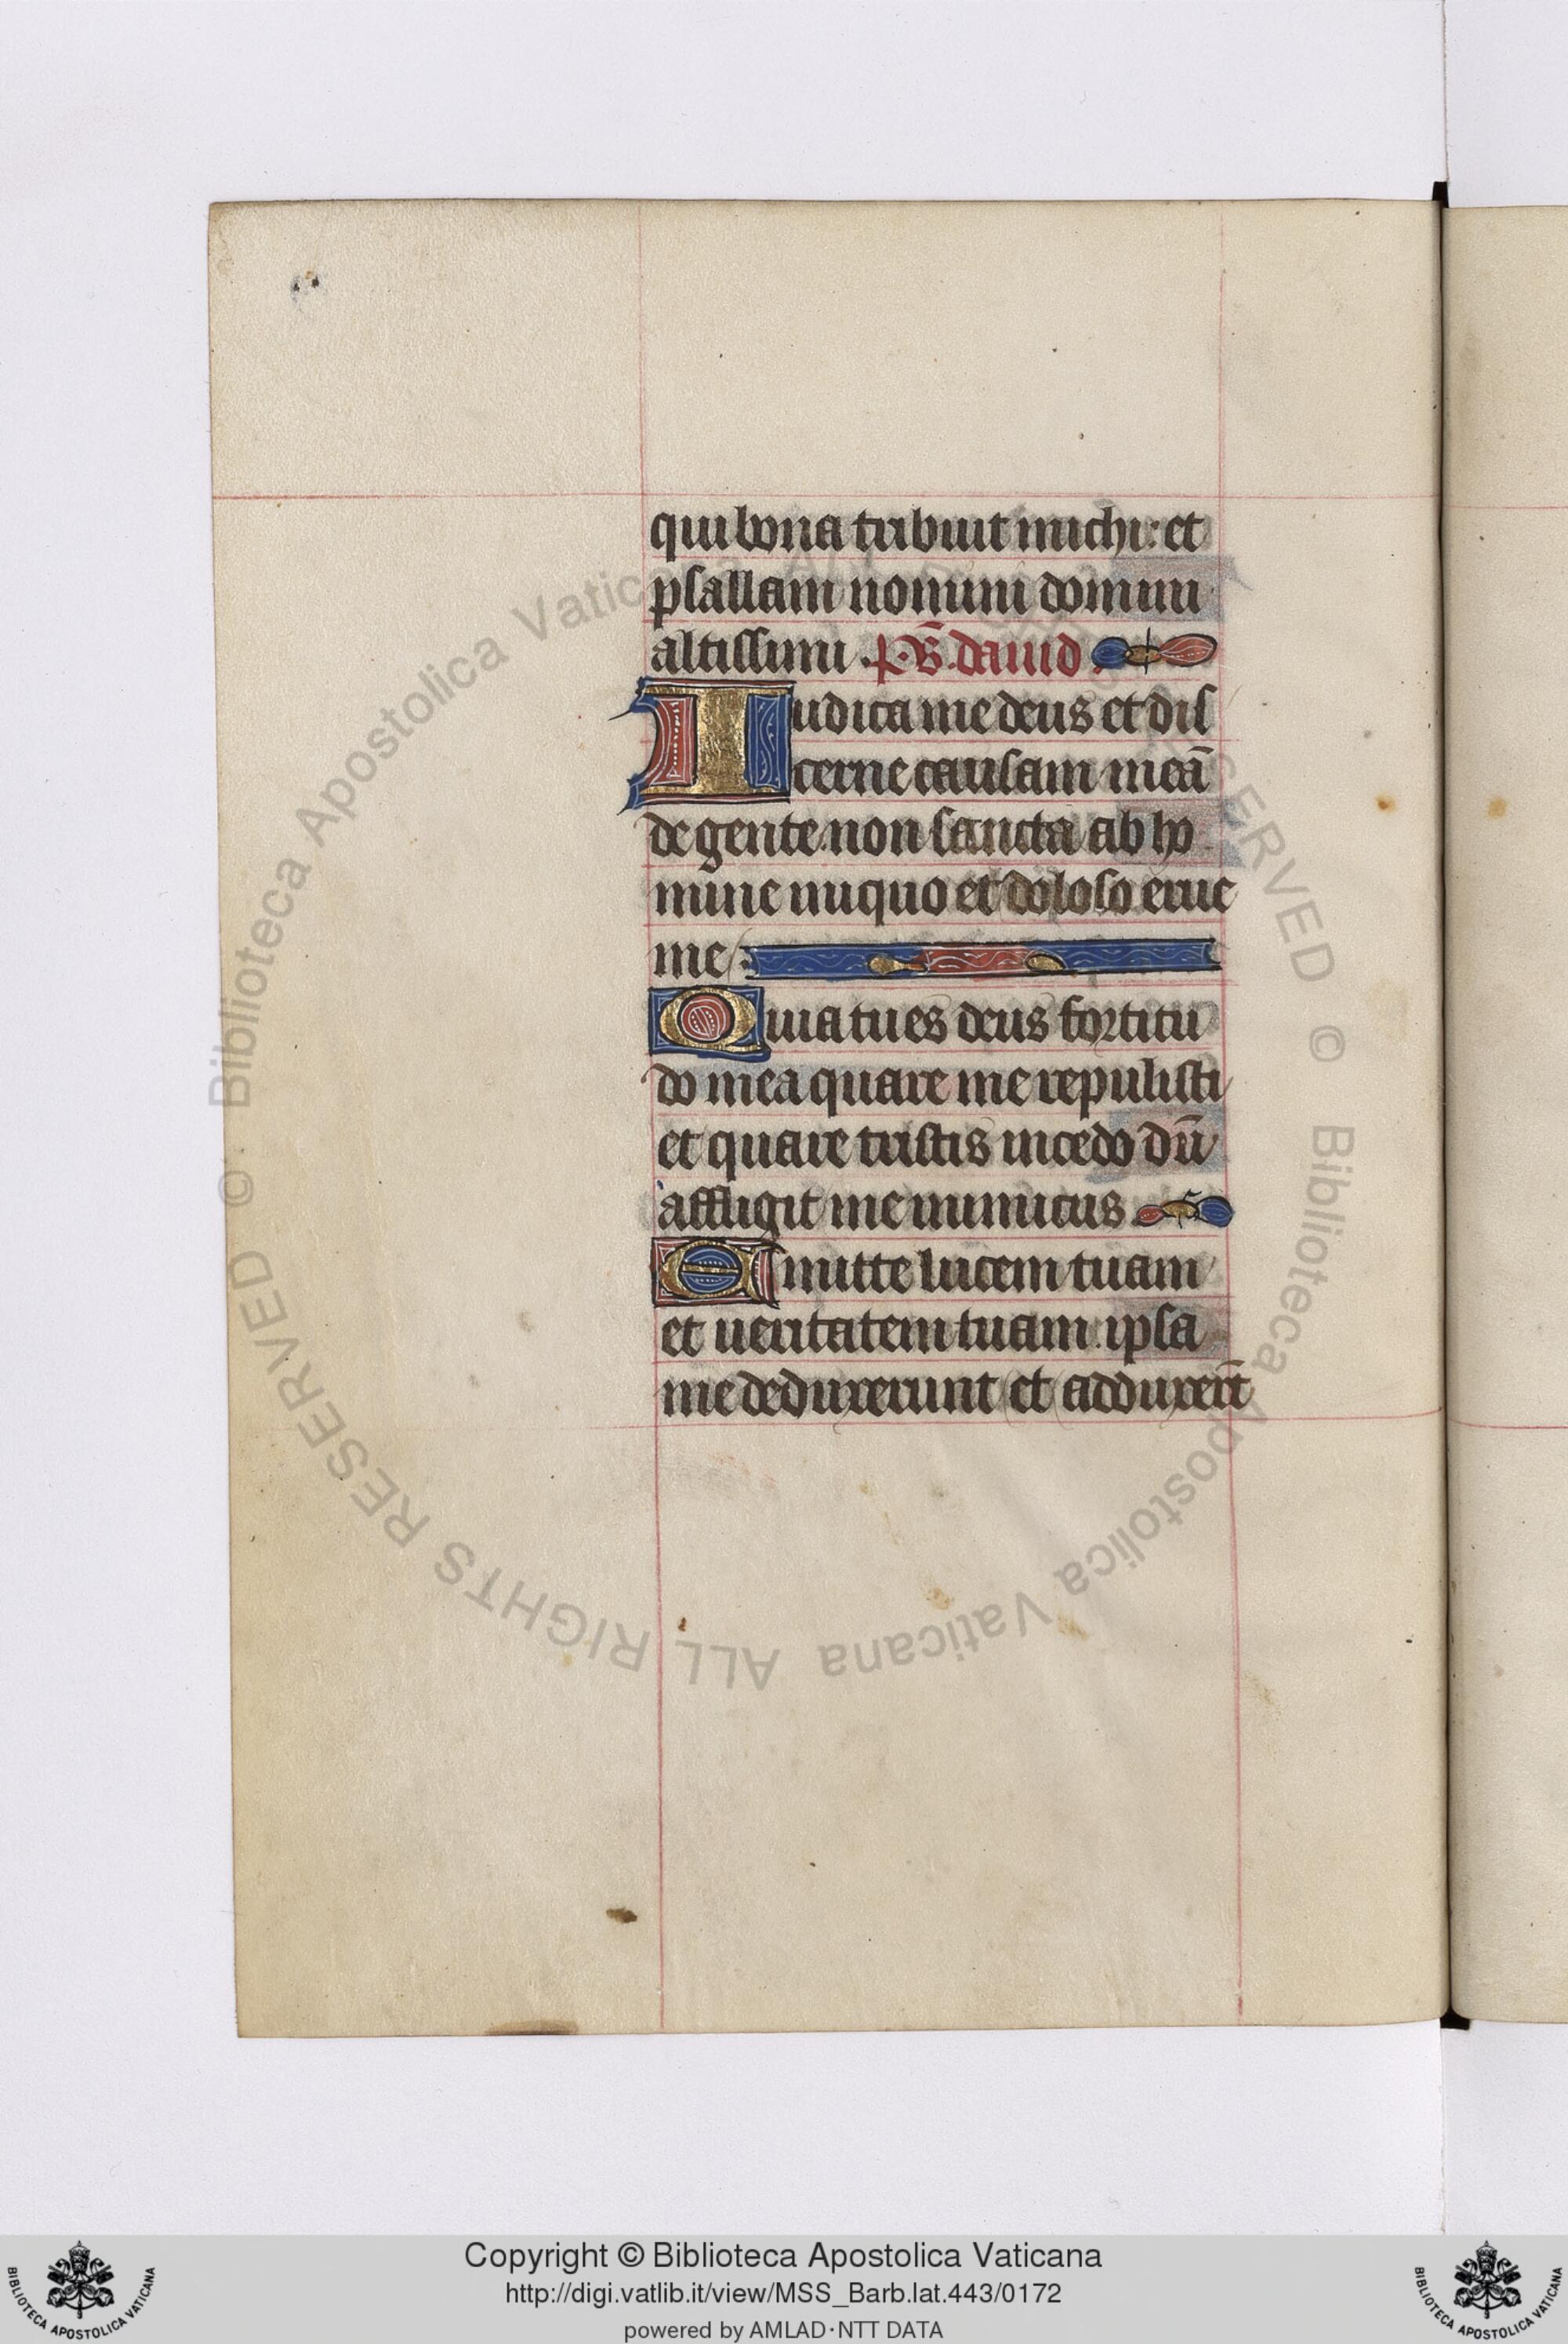 qui bona tribuit michi: et
psallam nomini domini
altissimi. ps̄. dauid
Iudica me deus et dis
cerne causam meā
de gente non sancta ab ho
mine iniquo et doloso erue
me
Quia tu es deus fortitu
do mea quare me repulisti
et quare tristis incedo dū
affligit me inimicus
Emitte lucem tuam
et ueritatem tuam ipsa
me deduxerunt et adduxer̄t
© Biblioteca Apostolica Vaticana ALL RIGHTS RESERVED © Biblioteca Apostolica Vaticana ALL RIGHTS RESERVED
Copyright © Biblioteca Apostolica Vaticana
http://digi.vatlib.it/view/MSS_Barb.lat.443/0172
powered by AMLAD·NTT DATA
BIBLIOTECA APOSTOLICA VATICANA
BIBLIOTECA APOSTOLICA VATICANA